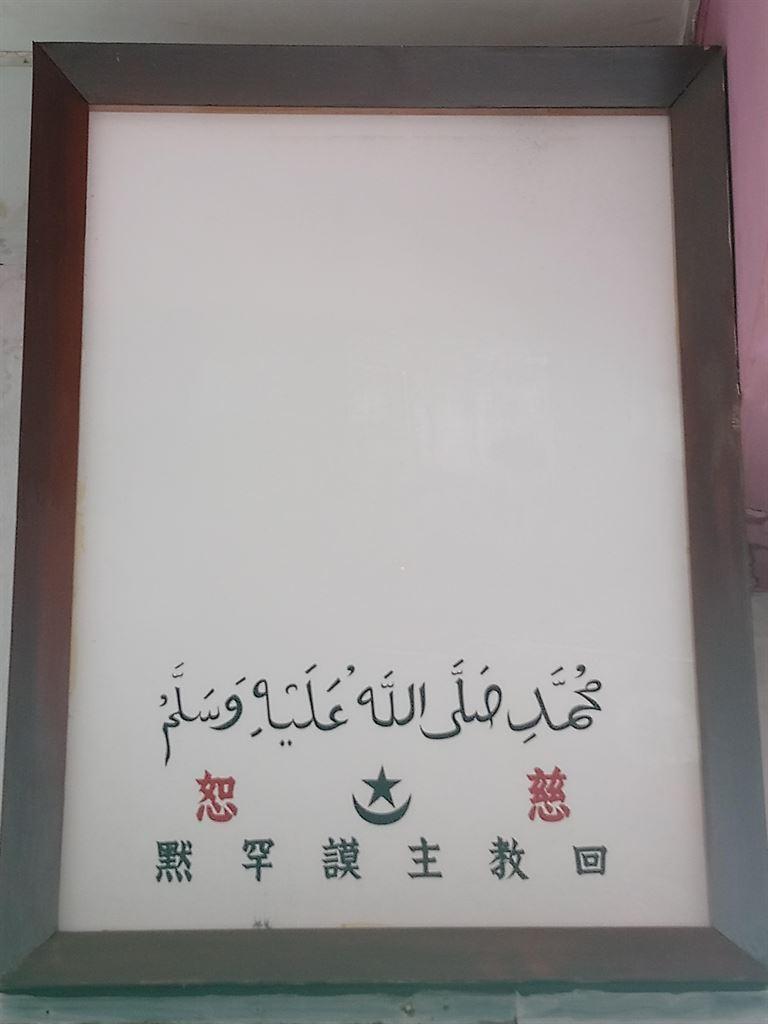 مُحَمَّدِ صَلَّى اللَّه ُعَلَيْهِ وَسَلَّمُ
慈 恕
回教主謨罕默